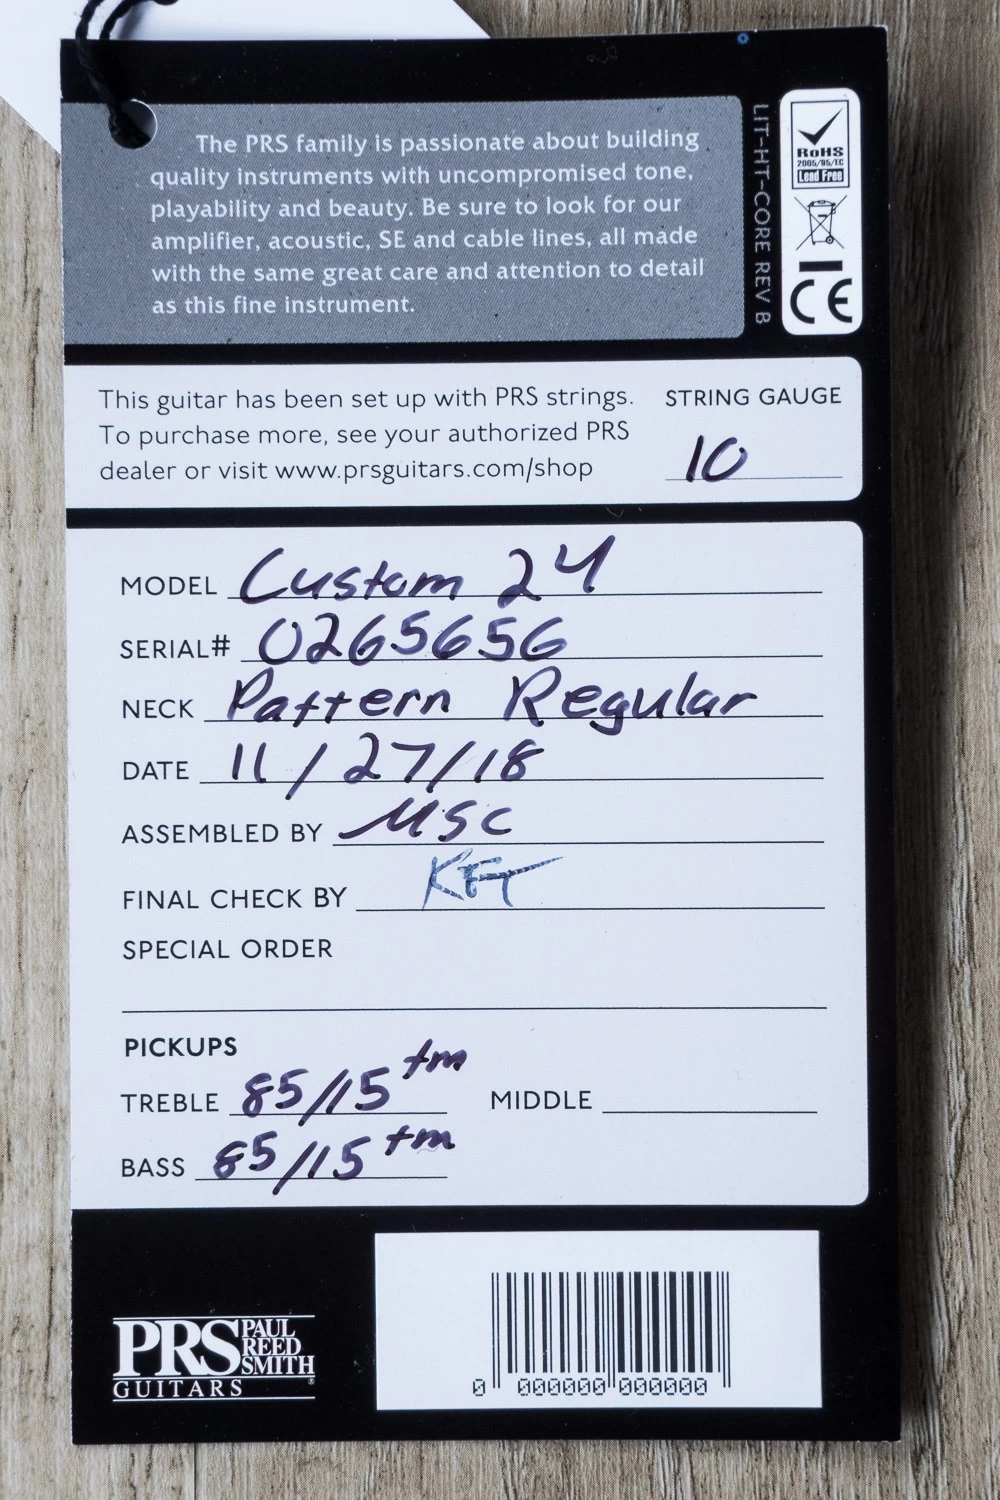 The PRS family is passionate about building
quality instruments with uncompromised tone,
playability and beauty. Be sure to look for our
amplifier, acoustic, SE and cable lines, all made
with the same great care and attention to detail
as this fine instrument.
LIT-HT-CORE REV B
RoHS
2005/95/EC
Lead Free
CE
This guitar has been set up with PRS strings.
To purchase more, see your authorized PRS
dealer or visit www.prsguitars.com/shop
STRING GAUGE
10
MODEL Custom 24
SERIAL# 0265656
NECK Pattern Regular
DATE 11/27/18
ASSEMBLED BY MSC
FINAL CHECK BY KFT
SPECIAL ORDER
PICKUPS
TREBLE 85/15 tm MIDDLE
BASS 85/15 tm
PRS PAUL REED SMITH
GUITARS
0 000000 000000